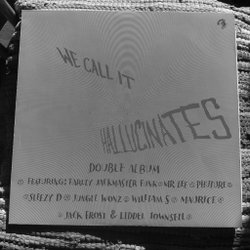 WE CALL IT
HALLUCINATES
DOUBLE ALBUM
FEATURING: FARLEY JACKMASTER FUNK MR LEE PHUTURE
SLEEZY D JUNGLE WONZ WILLIAM S MAURICE
JACK FROST & LIDDELL TOWNSELL